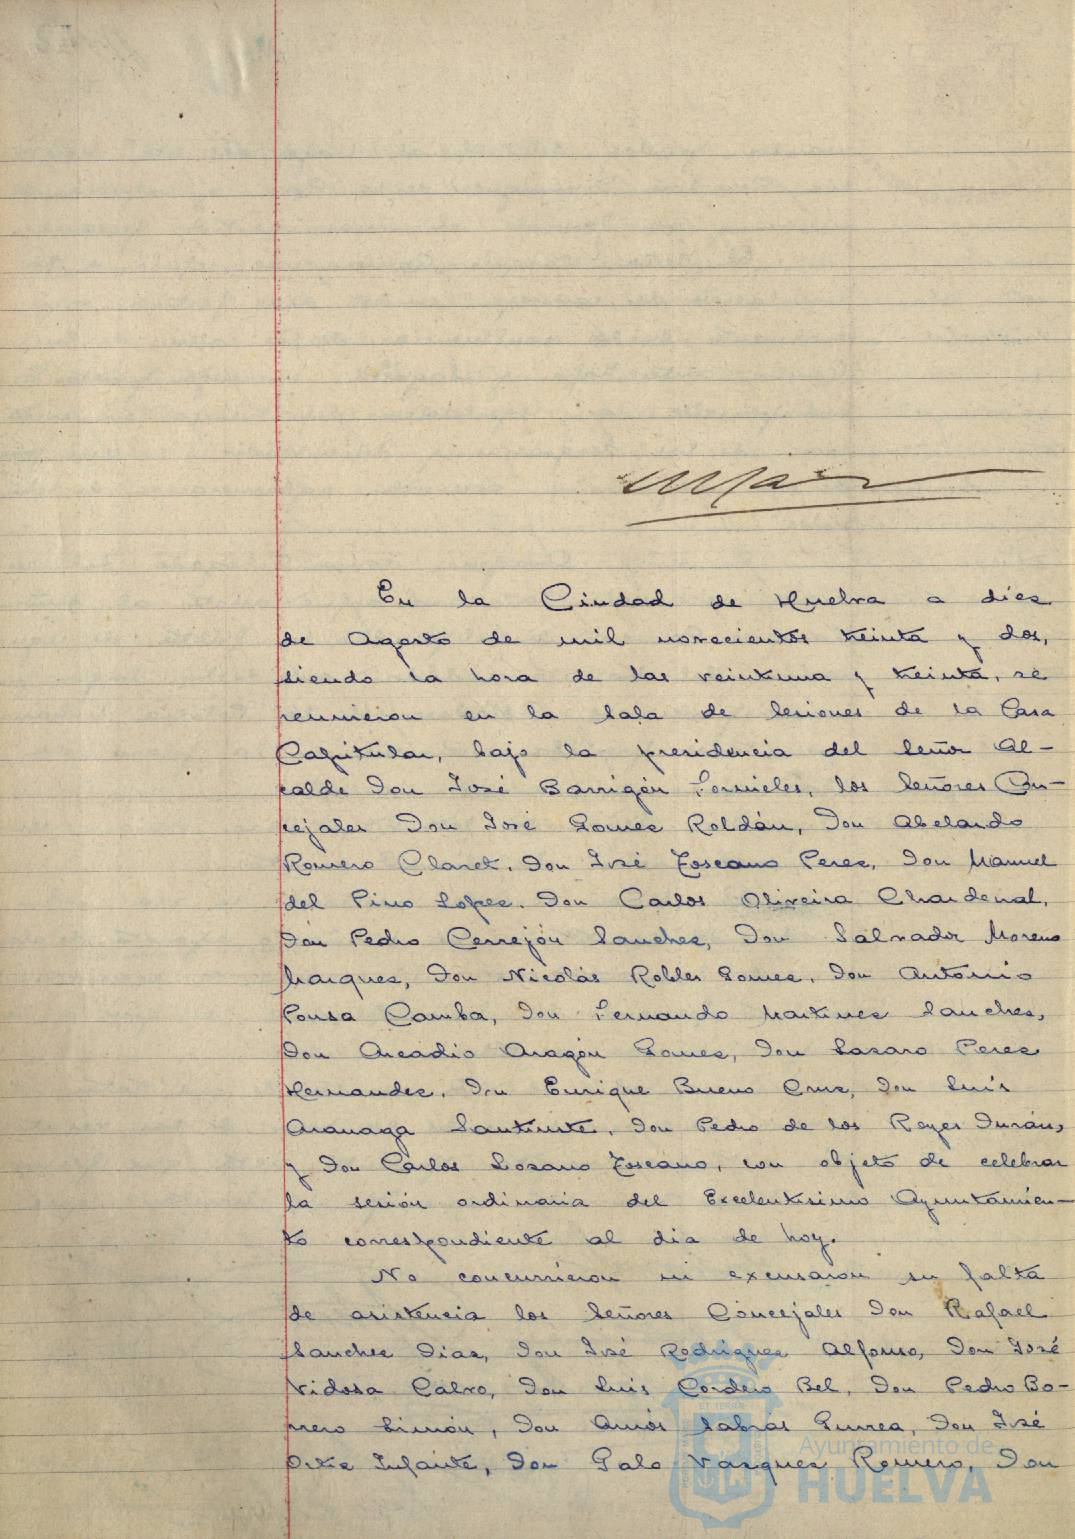 En la Ciudad de Huelva a diez
de Agosto de mil novecientos treinta y dos,
siendo la hora de las veintiuna y treinta, se
reunieron en la Sala de Sesiones de la Casa
Capitular, bajo la presidencia del Señor Al-
calde Don José Barrigón Fornieles, los Señores Con-
cejales Don José Gomez Roldán, Don Abelardo
Romero Claret, Don José Toscano Perez, Don Manuel
del Pino Lopez, Don Carlos Oliveira Chardenal,
Don Pedro Cerrejón Sanchez, Don Salvador Moreno
Marquez, Don Nicolás Robles Gomez, Don Antonio
Pousa Camba, Don Fernando Martinez Sanchez,
Don Arcadio Aragón Gomez, Don Lazaro Perez
Hernandez, Don Enrique Bueno Cruz, Don Luis
Aranaga Santiuste, Don Pedro de los Reyes Durán,
y Don Carlos Lozano Toscano, con objeto de celebrar
la sesión ordinaria del Excelentisimo Ayuntamien-
to correspondiente al dia de hoy.
No concurrieron ni excusaron su falta
de asistencia los Señores Concejales Don Rafael
Sanchez Diaz, Don José Rodriguez Alfonso, Don José
Vidosa Calvo, Don Luis Cordero Bel, Don Pedro Bo-
rrero Limón, Don Amós Sabrás Gurrea, Don José
Ortiz Infante, Don Galo Vazquez Romero, Don
Ayuntamiento de
HUELVA